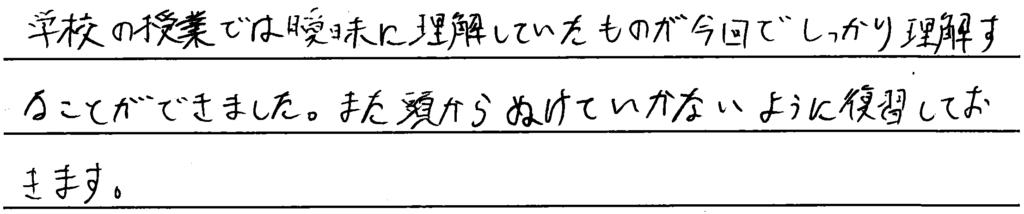 学校の授業では曖昧に理解していたものが今回でしっかり理解す
ることができました。また頭からぬけていかないように復習してお
きます。